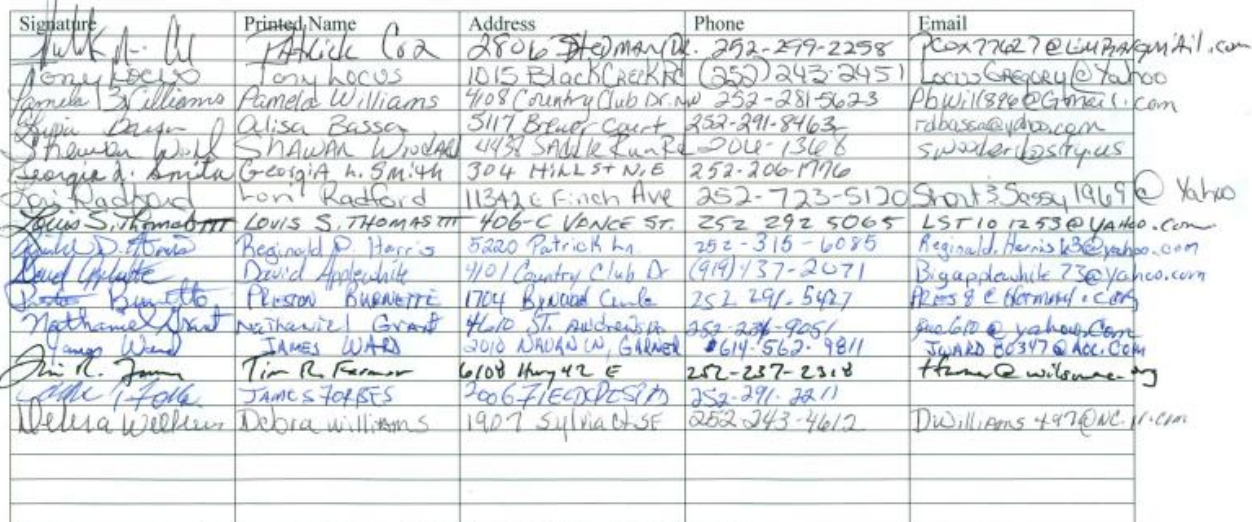 Signature Printed Name Address Phone Email
Patrick Cox 2806 Stedman Dr. 252-299-2258
Tony Locus Tony Locus 1015 Black Creek Rd (252) 243-2451 LocusGregory@Yahoo
Pamela B Williams Pamela Williams 4108 Country Club Dr. NW 252-281-5623 Pbwill896@Gmail.com
Alisa Bassa 5117 Brewer Court 252-291-8463 rdbassa@yahoo.com
Shawan 4437 Saddle Run Rd 206-1368
Georgia L. Smith Georgia L. Smith 304 Hill St N.E 252-206-1776
Lori Radford Lori Radford 11342 E Finch Ave 252-723-5120 Short3Sassy1969@Yahoo
Louis S. Thomas III LOUIS S. THOMAS III 406-C VANCE ST. 252 292 5065 LST101253@YAHOO.com
Reginald D. Harris 5220 Patrick Ln. 252-315-6085 Reginald.Harris63@yahoo.com
David Applewhite David Applewhite 4101 Country Club Dr (919) 437-2071 Bigapplewhite73@yahoo.com
Burnette PRESTON BURNETTE 1704 Circle 252 291-5427
Nathaniel Grant Nathaniel Grant 4610 St. Andrews Dr 252-236-9051 @yahoo.com
James Ward JAMES WARD 2010 GARNER 614-562-9811 JWARD80347@AOL.COM
Tim R. Farmer Tim R. Farmer 6108 Hwy 42 E 252-237-2318
JAMES FORBES 252-291-2211
Debra Williams Debra Williams 1907 Sylvia Ct SE 252-243-4612